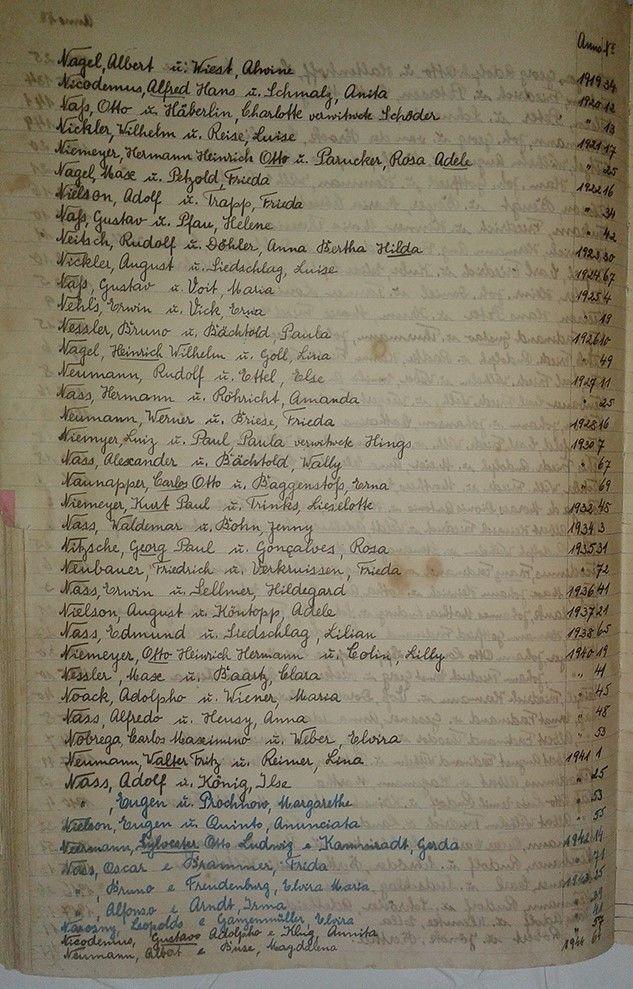 Anno No
Nagel, Albert u. Wiest, Alwine 1919 34
Nicodemus, Alfred Hans u. Schmalz, Anita 1920 12
Naß, Otto u. Häberlin, Charlotte verwitwete Schöder " 13
Nickler, Wilhelm u. Reise, Luise 1921 17
Niemeyer, Hermann Heinrich Otto u. Parucker, Rosa Adele " 25
Nagel, Max u. Petzold, Frieda 1922 16
Nielson, Adolf u. Trapp, Frieda " 34
Naß, Gustav u. Pfau, Helene " 42
Neitsch, Rudolf u. Döhler, Anna Bertha Hilda 1923 30
Nickler, August u. Liedschlag, Luise 1924 67
Naß, Gustav u. Voit, Maria 1925 4
Nehls, Erwin u. Vick, Erna " 19
Nessler, Bruno u. Bächtold, Paula 1926 10
Nagel, Heinrich Wilhelm u. Goll, Lina " 49
Neumann, Rudolf u. Ettel, Else 1927 11
Nass, Hermann u. Röhricht, Amanda " 25
Neumann, Werner u. Briese, Frieda 1928 16
Niemyer, Luiz u. Paul, Paula verwitwete Hings 1930 7
Nass, Alexander u. Bächtold, Wally " 67
Naunapper, Carlos Otto u. Baggenstoß, Erna " 69
Niemeyer, Kurt Paul u. Trinks, Lieselotte 1932 45
Nass, Waldemar u. Bohn, Jenny 1934 3
Nitzsche, Georg Paul u. Gonçalves, Rosa 1935 31
Neubauer, Friedrich u. Verkruissen, Frieda " 72
Nass, Erwin u. Sellmer, Hildegard 1936 41
Nielson, August u. Köntopp, Adele 1937 21
Nass, Edmund u. Liedschlag, Lilian 1938 65
Niemeyer, Otto Heinrich Hermann u. Colin, Lilly 1940 19
Nessler, Max u. Baartz, Clara " 41
Noack, Adolpho u. Wiener, Maria " 45
Nass, Alfredo u. Hensy, Anna " 48
Nobrega, Carlos Maximino u. Weber, Elvira " 53
Neumann, Walter Fritz u. Reimer, Lina 1941 1
Nass, Adolf u. König, Ilse " 25
" , Eugen u. Prochnow, Margarethe " 53
Nielson, Eugen u. Quinto, Anunciata " 55
Neermann, Sylvester Otto Ludwig e Kammradt, Gerda 1942 14
Nass, Oscar e Brammer, Frida " 71
" , Bruno e Freudenburg, Elvira Maria 25
" , Alfonso e Arndt, Irma
Leopoldo e Ganzenmüller, Elvira
Nicodemus, Gustavo Adolpho e Klug, Annita " 57
Neumann, Albert e Buse, Magdalena 1944 61